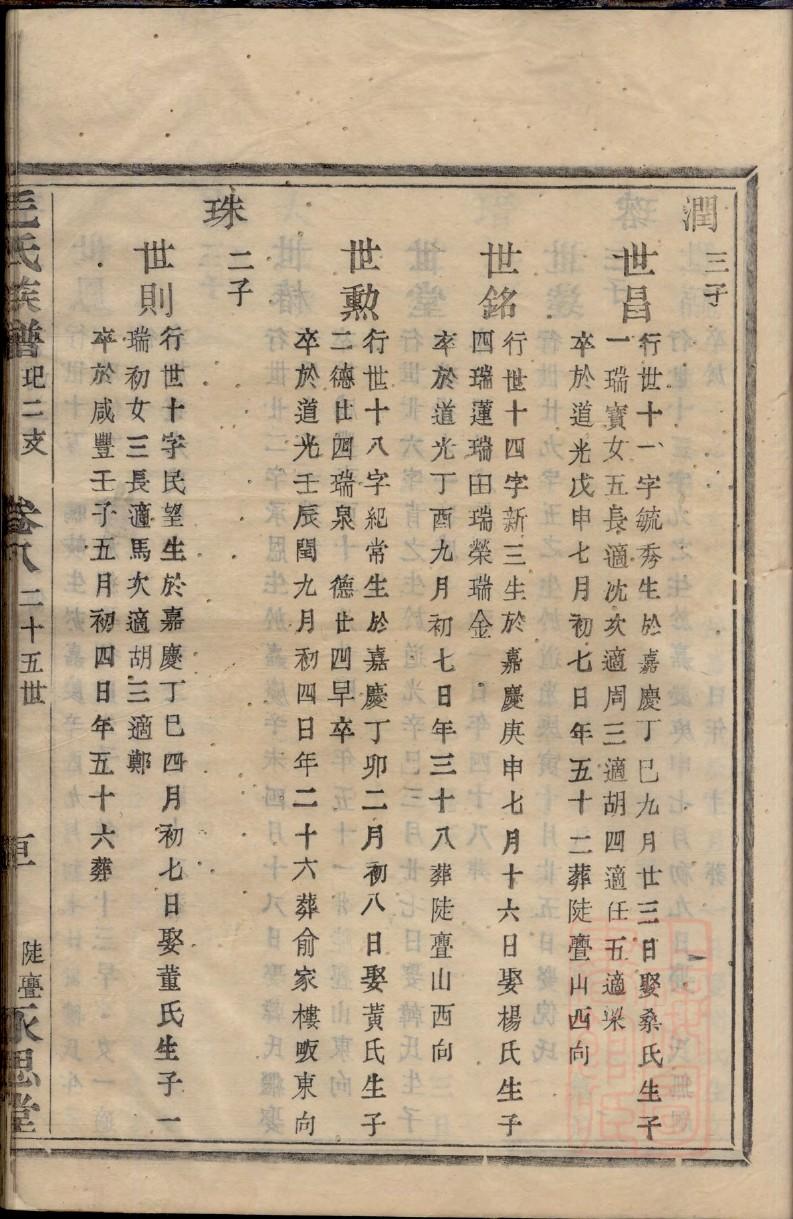 潤 三子
世昌 行世十一字毓秀生於嘉慶丁巳九月廿三日娶桑氏生子
一瑞寶女五長適沈次適周三適胡四適任五適梁
卒於道光戊申七月初七日年五十二葬陡亹山西向
世銘 行世十四字新三生於嘉慶庚申七月十六日娶楊氏生子
四瑞蓮瑞田瑞榮瑞金
卒於道光丁酉九月初七日年三十八葬陡亹山西向
世勲 行世十八字紀常生於嘉慶丁卯二月初八日娶黃氏生子
二德廿四瑞泉 德廿四早卒
卒於道光壬辰閏九月初四日年二十六葬俞家樓畈東向
珠 二子
世則 行世十字民望生於嘉慶丁巳四月初七日娶董氏生子一
瑞初女三長適馬次適胡三適鄭
卒於咸豐壬子五月初四日年五十六葬
毛氏族譜 圯二支 卷八 二十五世 陡亹永思堂